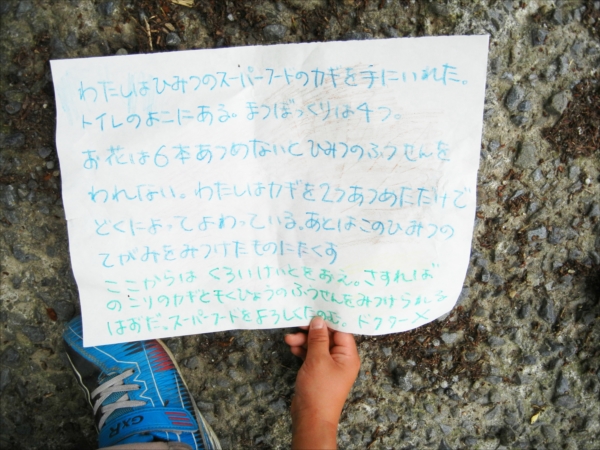 わたしはひみつのスーパーフードのカギを手にいれた。
トイレのよこにある。まつぼっくりは4つ。
お花は6本あつめないとひみつのふうせんを
われない。わたしはカギを2つあつめただけで
どくによってよわっている、あとはこのひみつの
てがみをみつけたものにたくす
ここからは くろいけいとをおえ。さすれば
のこりのカギともくひょうのふうせんをみつけられる
はずだ。スーパーフードをよろしくたのむ。ドクターX
GXR